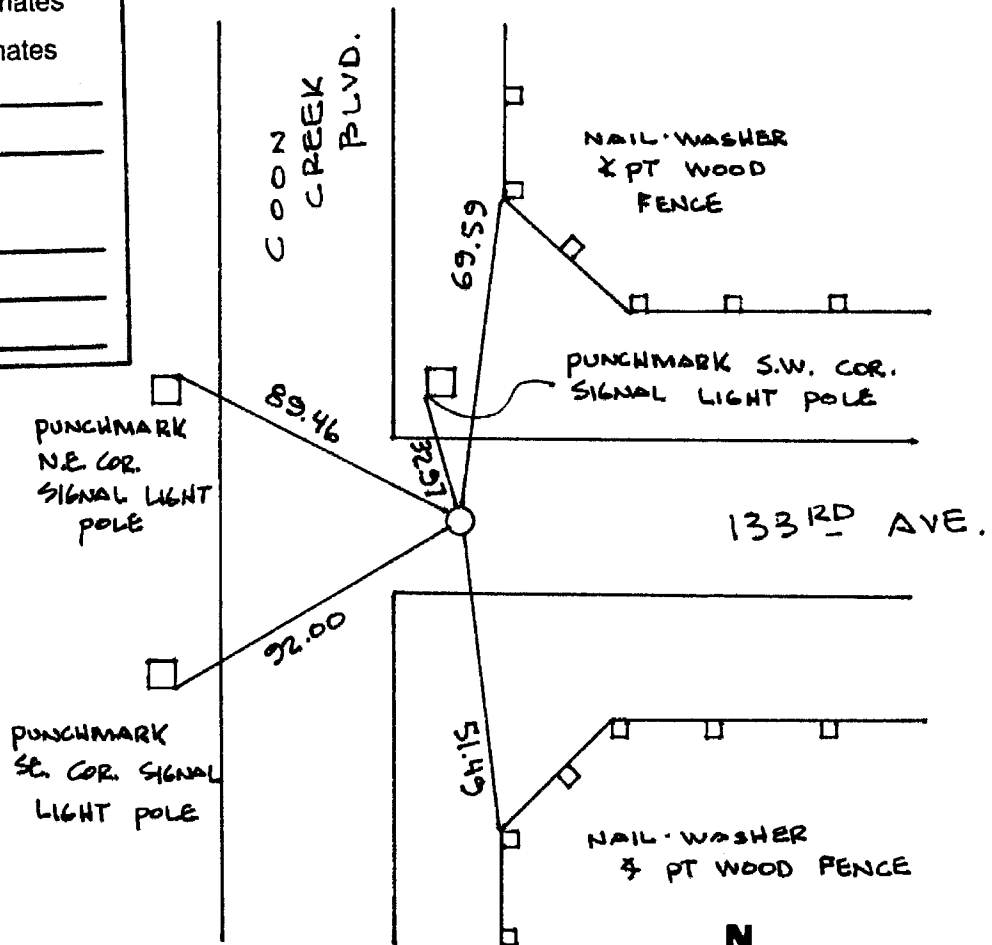 COON
CREEK
BLVD.
NAIL·WASHER
PT WOOD
FENCE
69.59
PUNCHMARK S.W. COR.
SIGNAL LIGHT POLE
89.46
PUNCHMARK
N.E. COR.
SIGNAL LIGHT
POLE
32.97
133RD AVE.
92.00
PUNCHMARK
SE. COR. SIGNAL
LIGHT POLE
51.49
NAIL·WASHER
PT WOOD FENCE
N